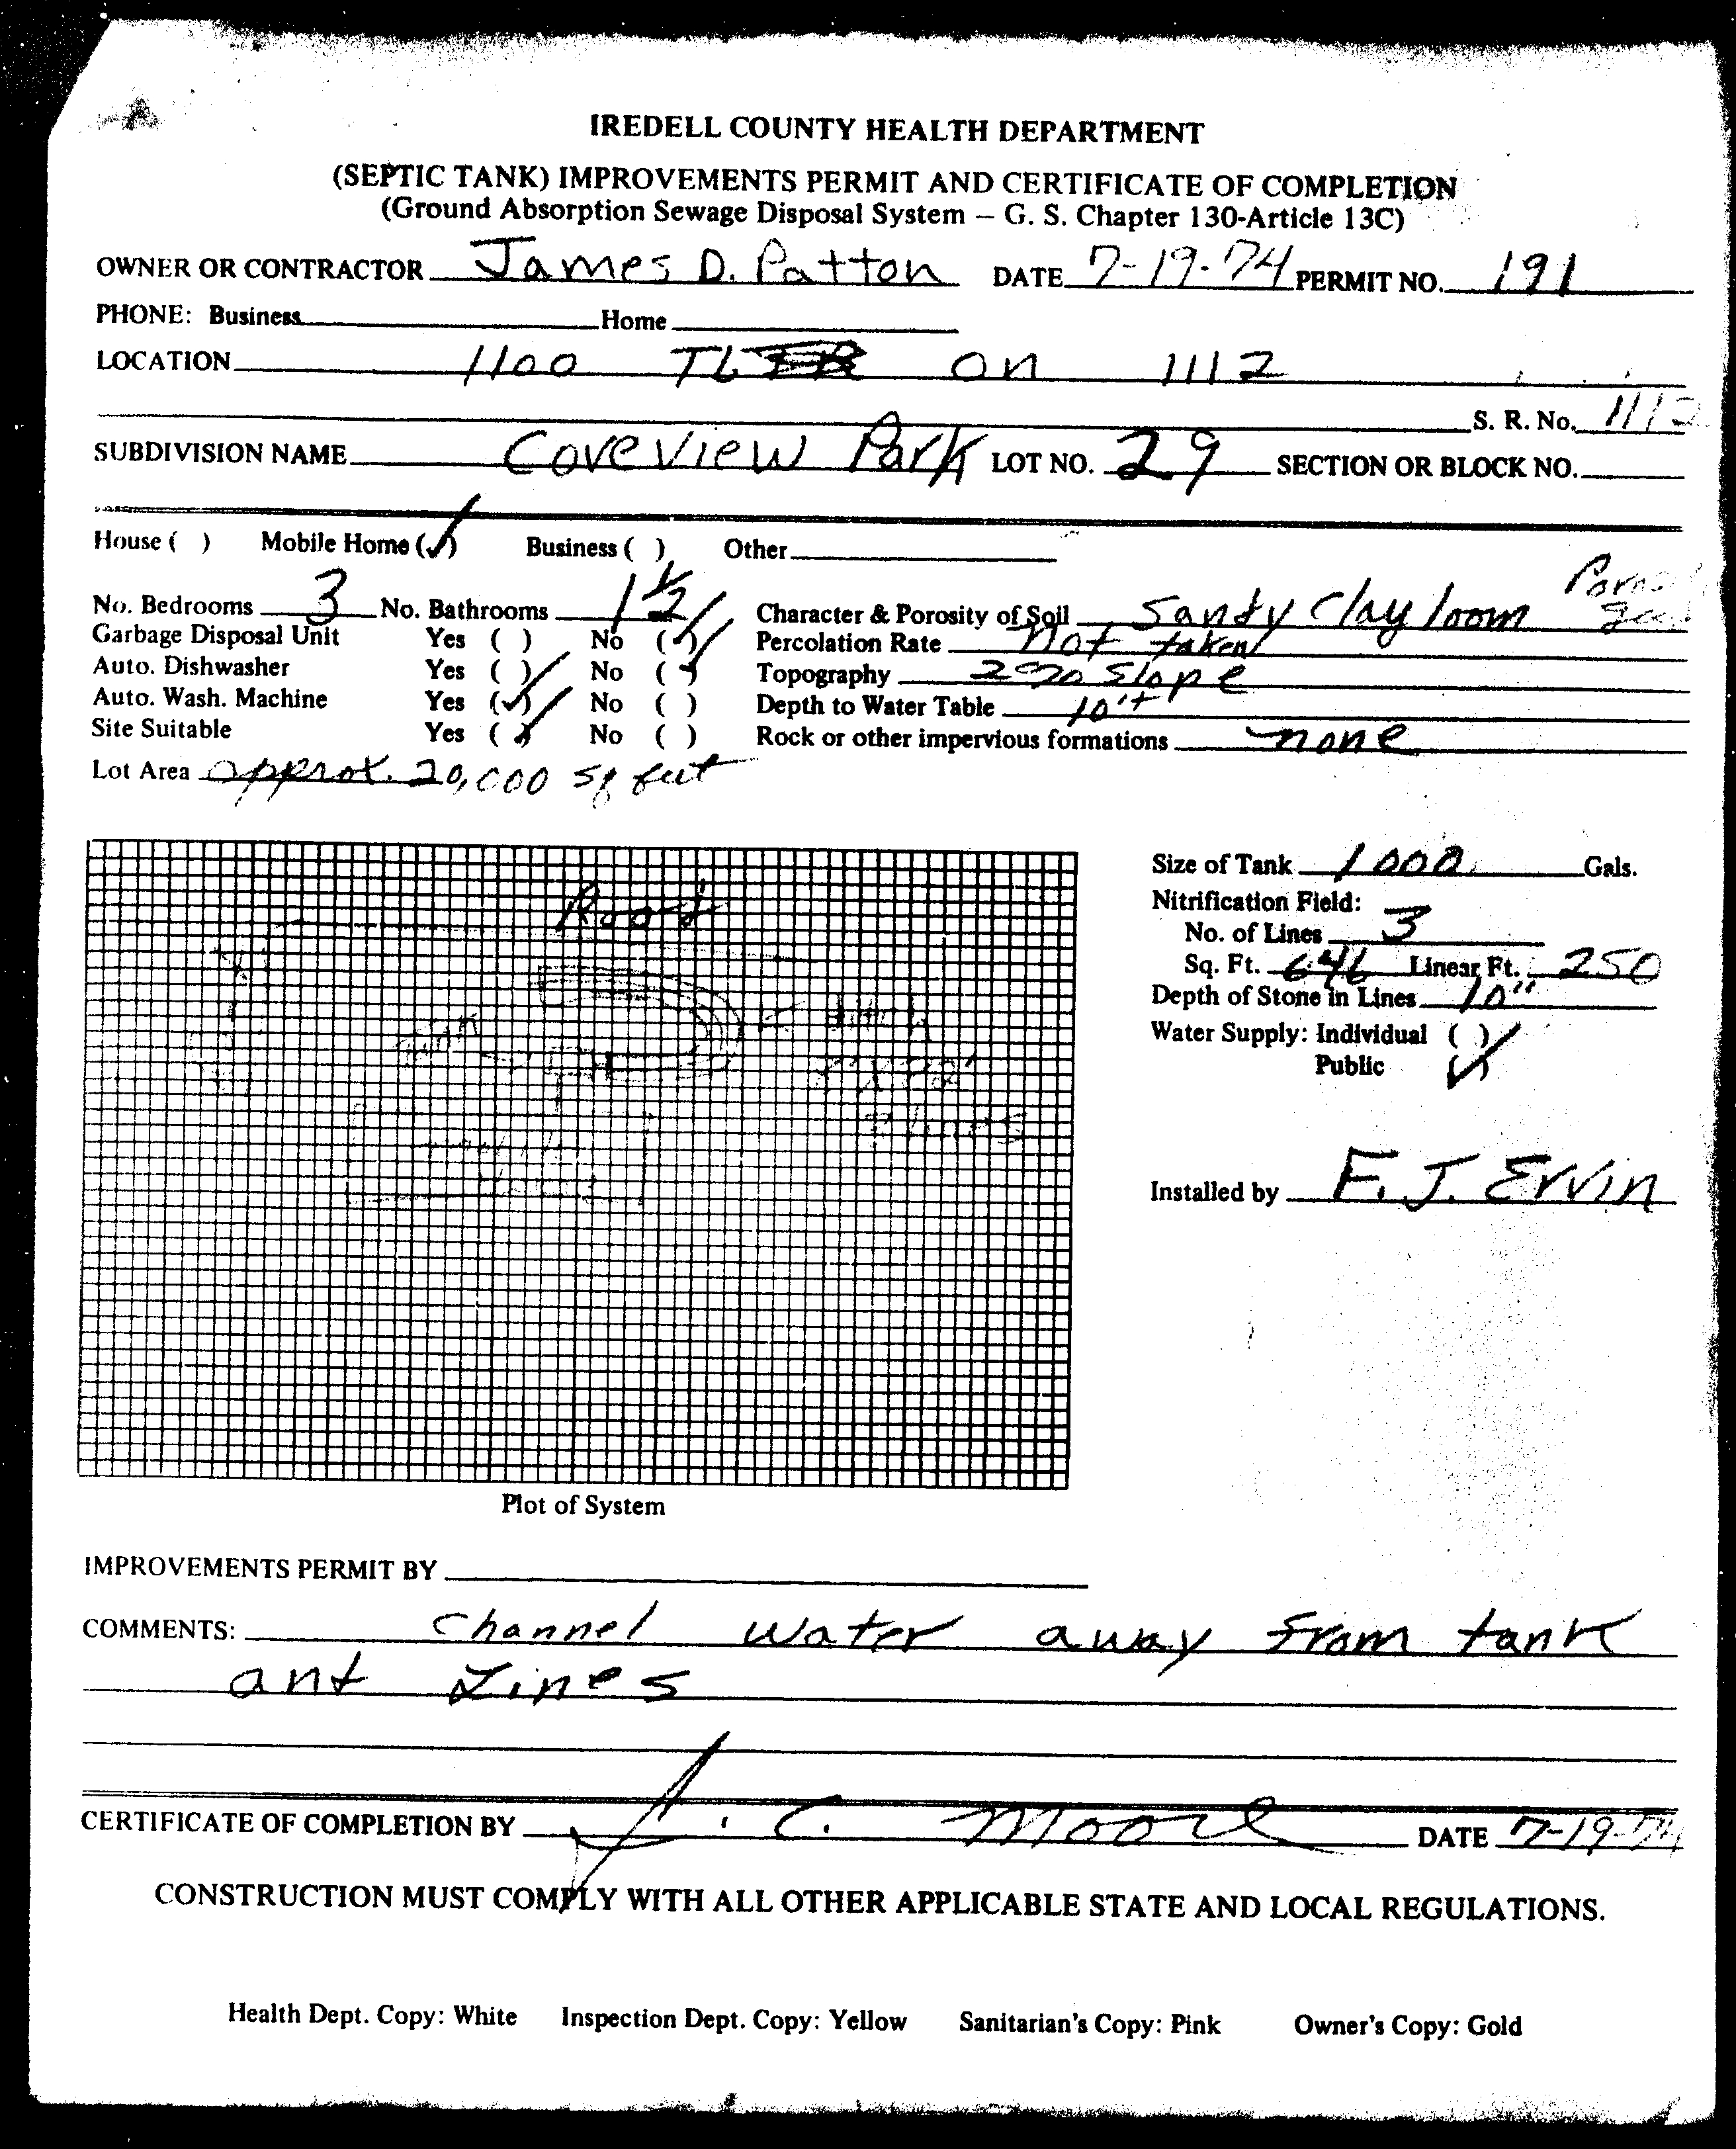 IREDELL COUNTY HEALTH DEPARTMENT
(SEPTIC TANK) IMPROVEMENTS PERMIT AND CERTIFICATE OF COMPLETION
(Ground Absorption Sewage Disposal System – G. S. Chapter 130-Article 13C)
OWNER OR CONTRACTOR James D. Patton DATE 7-19-74 PERMIT NO. 191
PHONE: Business Home
LOCATION 1100 TL on 1112
S. R. No. 1112
SUBDIVISION NAME Coveview Park LOT NO. 29 SECTION OR BLOCK NO.
House ( ) Mobile Home (✓) Business ( ) Other
No. Bedrooms 3 No. Bathrooms 1 1/2 Character & Porosity of Soil Sandy Clay loom
Garbage Disposal Unit Yes ( ) No (✓) Percolation Rate not taken
Auto. Dishwasher Yes ( ) No (✓) Topography 2% Slope
Auto. Wash. Machine Yes (✓) No ( ) Depth to Water Table 10'+
Site Suitable Yes (✓) No ( ) Rock or other impervious formations none
Lot Area approx. 20,000 sq feet
Road
Size of Tank 1000 Gals.
Nitrification Field:
No. of Lines 3
Sq. Ft. 646 Linear Ft. 250
Depth of Stone in Lines 10"
Water Supply: Individual ( )
Public (✓)
Installed by F. J. Ervin
Plot of System
IMPROVEMENTS PERMIT BY
COMMENTS: Channel water away from tank
and Lines
CERTIFICATE OF COMPLETION BY J. C. Moore DATE 7-19-74
CONSTRUCTION MUST COMPLY WITH ALL OTHER APPLICABLE STATE AND LOCAL REGULATIONS.
Health Dept. Copy: White Inspection Dept. Copy: Yellow Sanitarian's Copy: Pink Owner's Copy: Gold